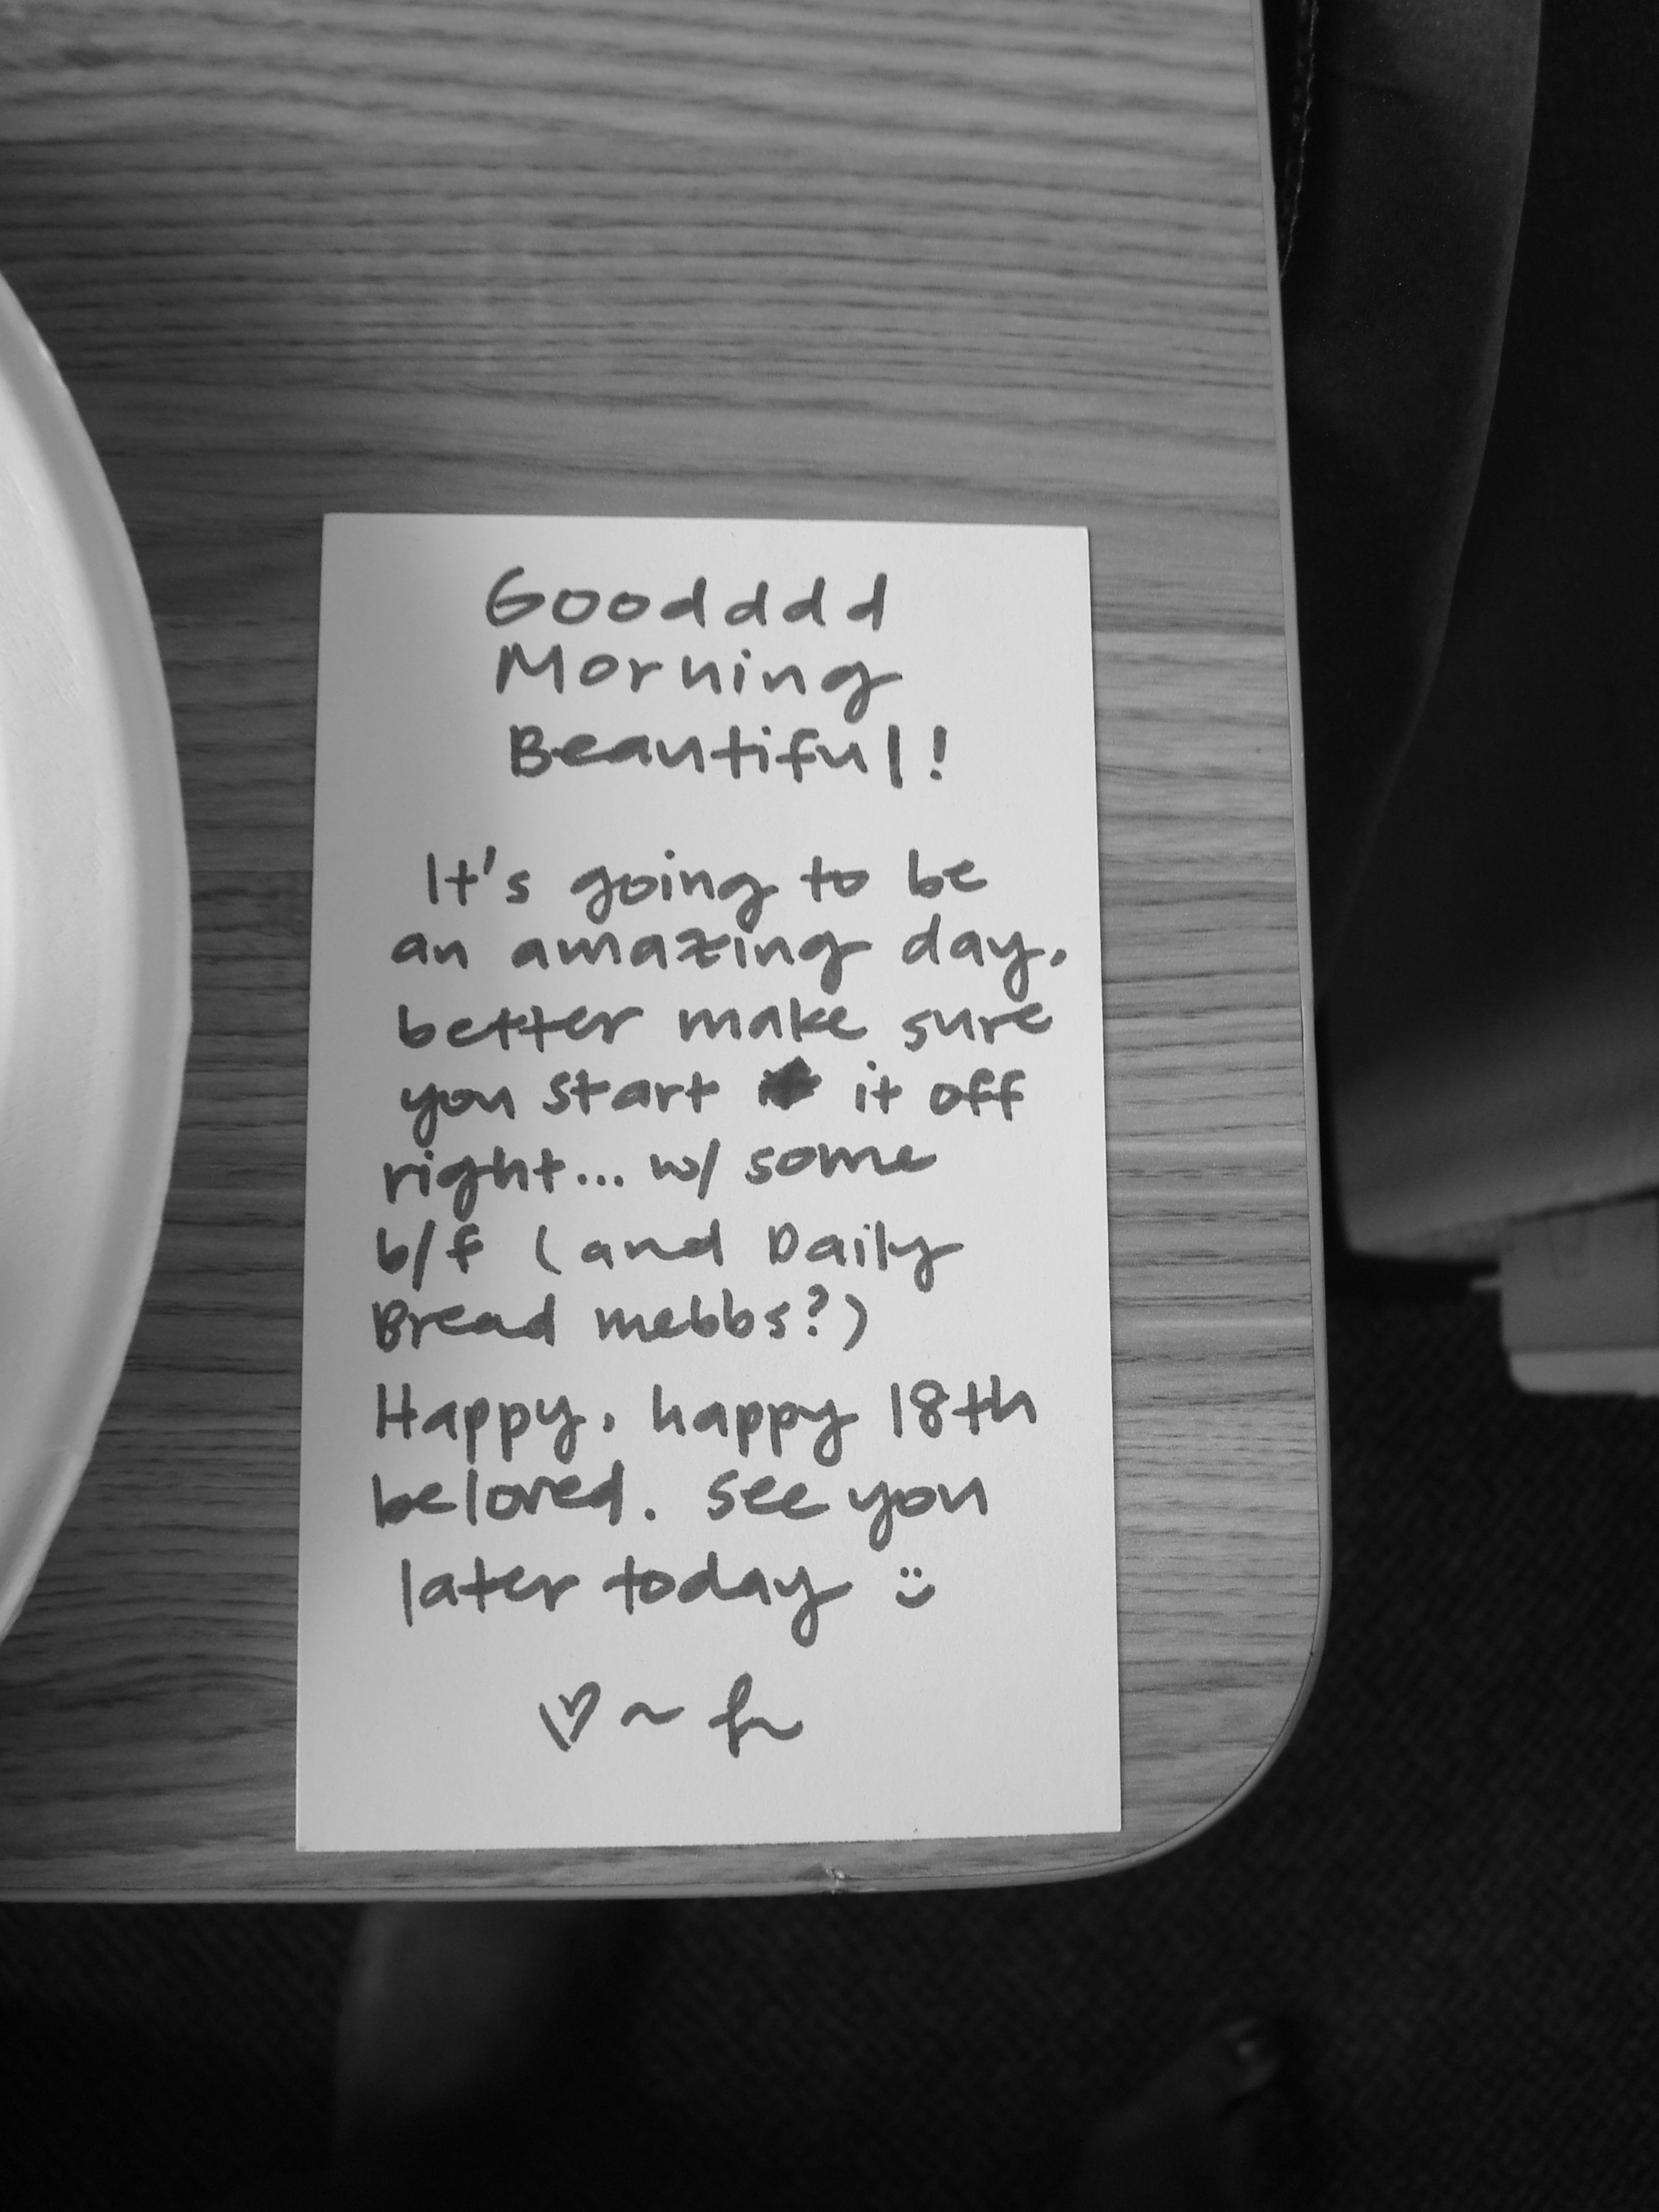 Goodddd
Morning
Beautiful!
It's going to be
an amazing day.
better make sure
you start it off
right... w/ some
b/f (and Daily
Bread mebbs?)
Happy, happy 18th
beloved. see you
later today :)
♡~ h